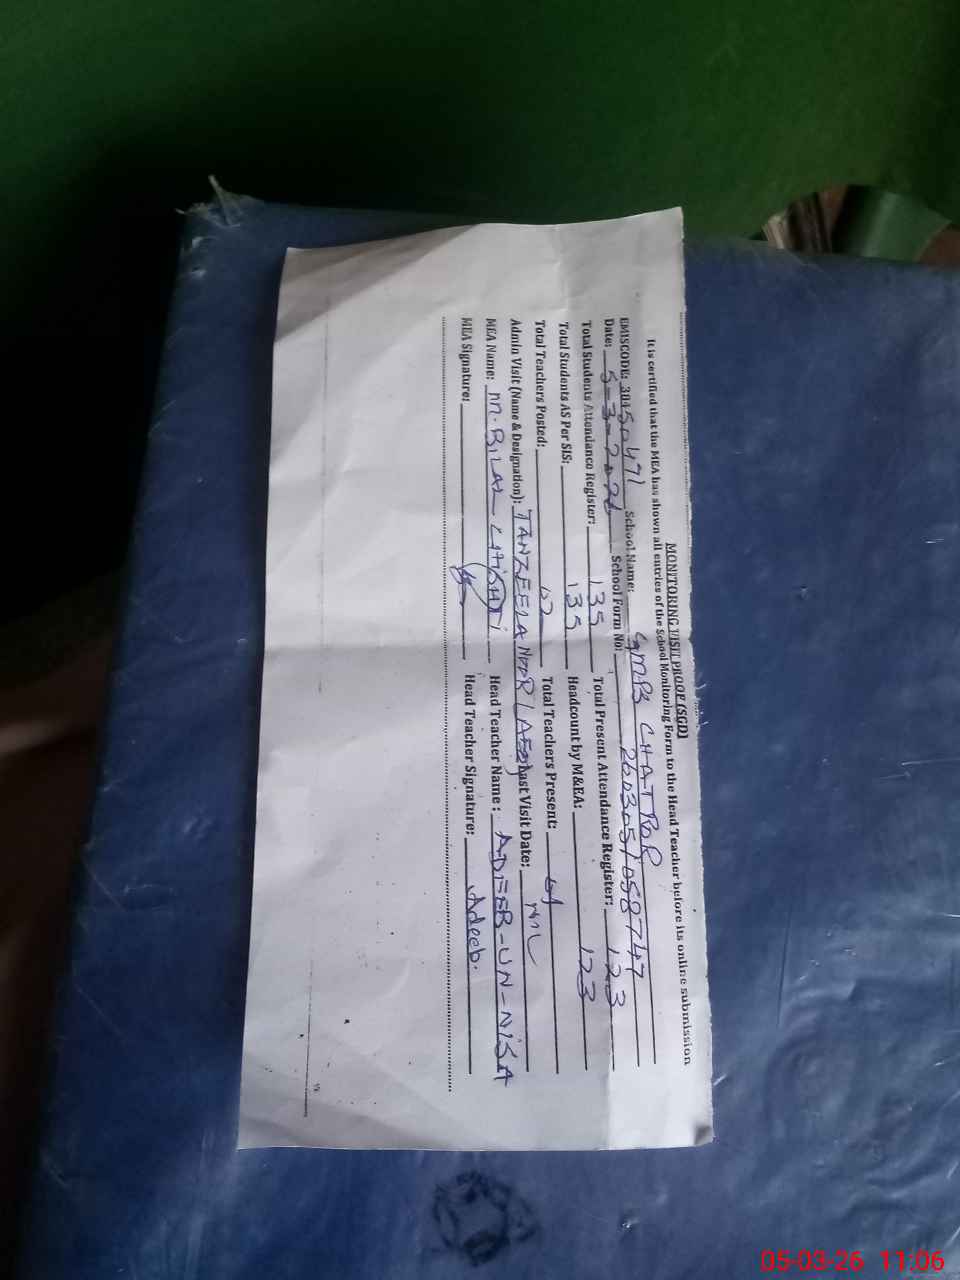 MONITORING VISIT PROOF (SGD)
It is certified that the MEA has shown all entries of the School Monitoring Form to the Head Teacher before its online submission
EMISCODE: 38450471 School Name: GMPS CHATROR
Date: 5-3-2026 School Form No: 2603051058747
Total Students Attendance Register: 135 Total Present Attendance Register: 123
Total Students AS Per SIS: 135 Headcount by M&EA: 123
Total Teachers Posted: Total Teachers Present:
Admin Visit (Name & Designation): TANZEELA NOOR (AEO) Last Visit Date:
MEA Name: M. BILAL CHISHTI Head Teacher Name : ADEEB-UN-NISA
MEA Signature: Head Teacher Signature: Adeeb.
05-03-26 11:06